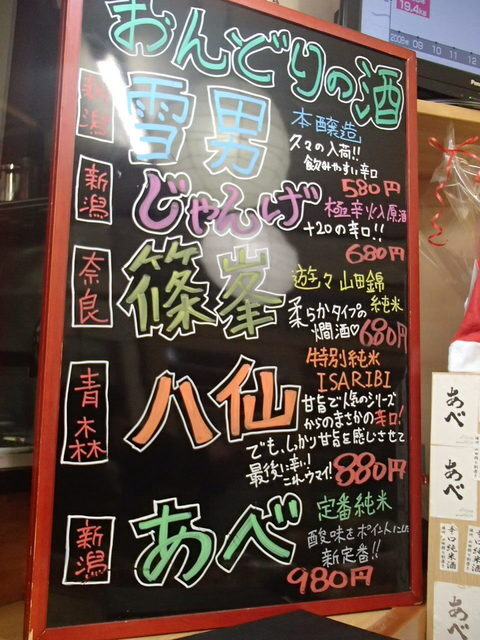 おんどりの酒
新潟
雪男
本醸造
久々の入荷!!
飲みやすい辛口
580円
新潟
じゃんげ
極辛火入原酒
+20の辛口!!
680円
奈良
篠峯
遊々山田錦
純米
柔らかタイプの
燗酒♡680円
青森
八仙
特別純米
ISARIBI
甘旨で人気のシリーズ
からのまさかの辛口!
でも、しっかり甘旨を感じさせて
最後に辛い!
これウマイ!
880円
新潟
あべ
定番純米
酸味をポイントにした
新定番!!
980円
19.4kg
2008年 09 10 11 12
あべ
あべ
辛口純米酒
辛口純米酒
あべ